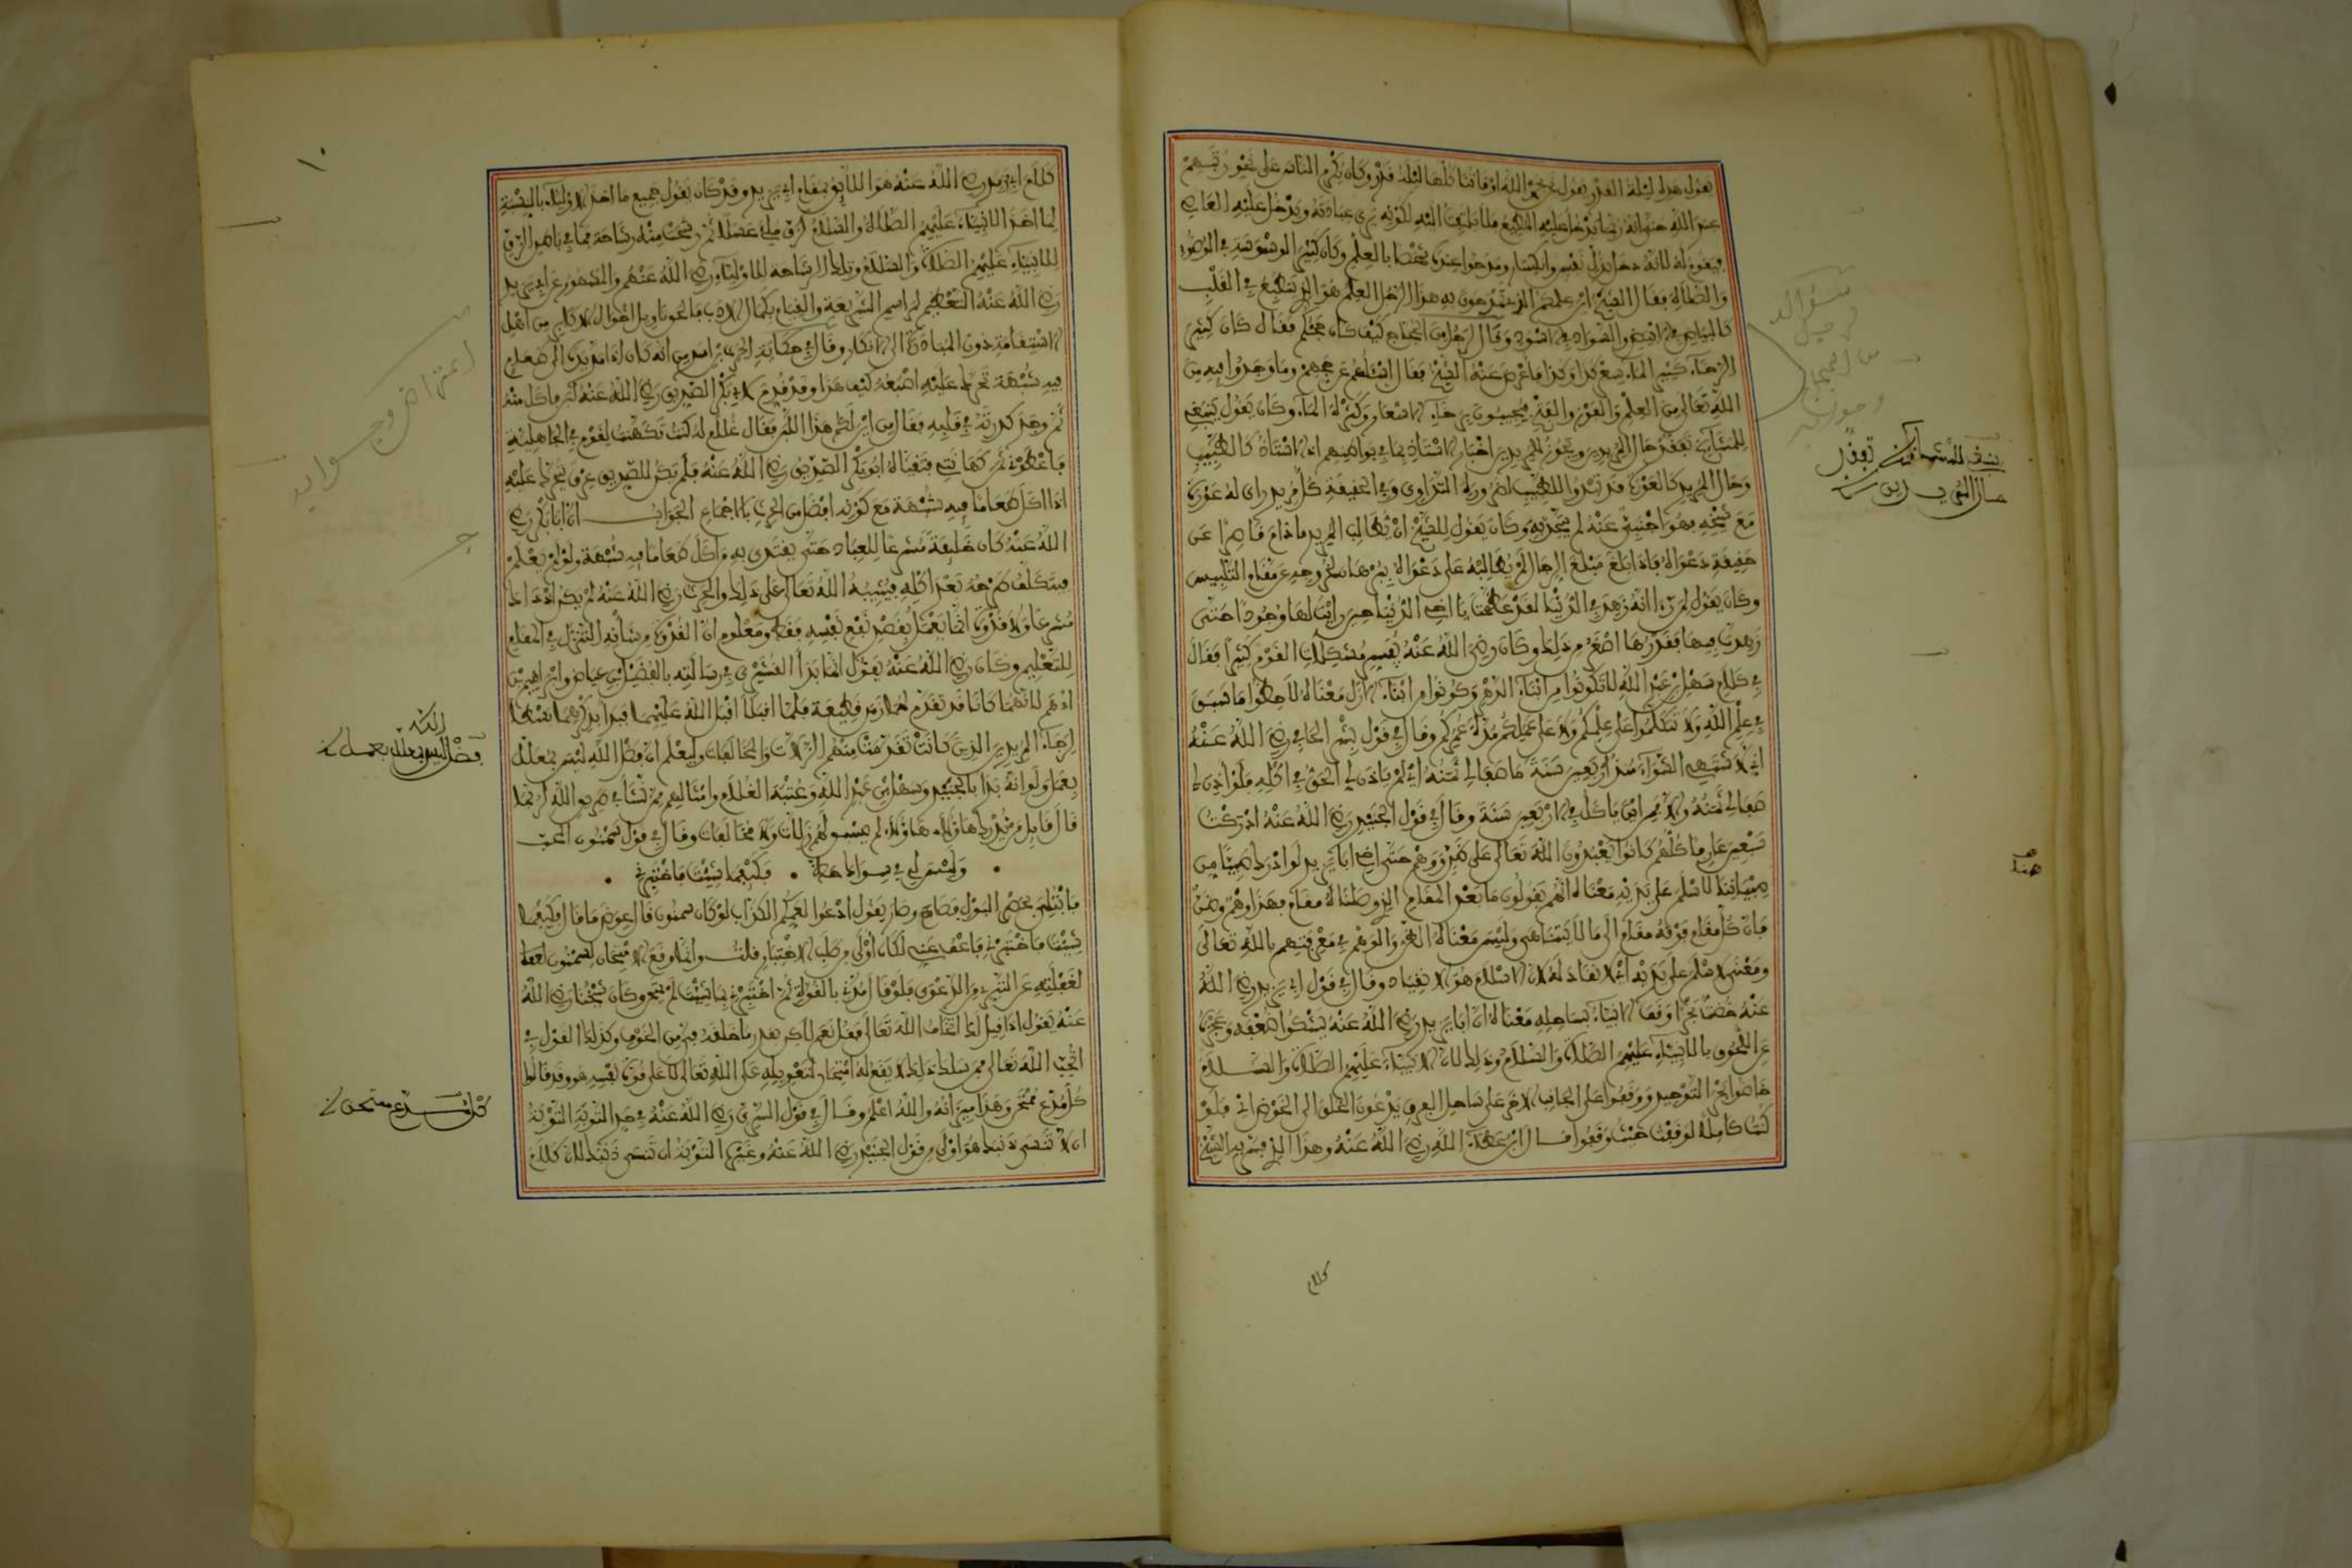 يقول هذا ليلة القدر يقول نحن بحمد الله أوقاتنا كلها ليلة قدر وكان يكرم الناس على نحو رتبهم
عند الله حتى انه ربما يدخل عليه المطيع فلا يلتفت اليه لكونه يرى عبادته ويدخل عليه العاصي
فيقوم له لانه دخل بذل نفس وانكسار ومدحوا عنده شخصا بالعلم وكان كثير الوسوسة في الوضوء
والصلاة فقال الشيخ اين علمكم الذي تمدحون به هذا الرجل العلم هو الذي ينطبع في القلب
كالبياض في الابيض والسواد في الاسود وقال لرجل من الحجاج كيف كان حجكم فقال كان كثير
الرخاء كثير الماء سعر كذا وكذا فاعرض عنه الشيخ فقال اسألهم عن حجهم وما وجدوا فيه من
الله تعالى من العلم والنور والفتح فيجيبون برخاء الاسعار وكثرة الماء وكان يقول ينبغي
للمشايخ تفقد حال المريدين ويجوز للمريدين اخبار الاستاذ بما في بواطنهم اذ الاستاذ كالطبيب
وحال المريد كالعورة قد تبدو للطبيب لضرورة التداوي وفي الحقيقة كل مريد راى له عورة
مع شيخه فهو اجنبي عنه لم يتحد به وكان يقول للشيخ ان يطالب المريد ما دام قاصرا عن
حقيقة دعواه فاذا بلغ مبلغ الرجال لم يطالبه على دعواه ببرهان لخروجه عن مقام التلبيس
وكان يقول لمن راى انه زهد في الدنيا لقد عظمت يا اخي الدنيا حين رايت لها وجودا حتى
زهدت فيها فقدرها اصغر من ذلك وكان رضي الله عنه يفسر مشكلات القوم كثيرا فقال
في كلام سهل بن عبد الله لا تكونوا من ابناء الدهر وكونوا من ابناء الازل معناه لاحظوا ما سبق
في علم الله ولا تتكلموا على علمكم ولا على عملكم مدة عمركم وقال في قول بشر الحافي رضي الله عنه
اني لاشتهي الشواء منذ اربعين سنة ما صفا لي ثمنه اي لم ياذن لي الحق في اكله فلو اذن لي
صفا لي ثمنه والا فمن اين ياكل في الاربعين سنة وقال في قول الجنيد رضي الله عنه ادركت
سبعين عارفا كلهم كانوا يعبدون الله تعالى على ظن ووهم حتى اخي ابا يزيد لو ادرك صبيا من
صبياننا لاسلم على يديه معناه انهم يقولون ما بعد المقام الذي وصلناه مقام فهذا وهم وظن
فان كل مقام فوقه مقام الى ما لا يتناهى وليس معناه الظن والوهم في معرفتهم بالله تعالى
ومعنى لاسلم على يديه اي لانقاد له لان الاسلام هو الانقياد وقال في قول ابي يزيد رضي الله
عنه خضت بحرا وقف الانبياء بساحله معناه ان ابا يزيد رضي الله عنه يشكوا ضعفه وعجزه
عن اللحوق بالانبياء عليهم الصلاة والسلام وذلك لان الانبياء عليهم الصلاة والسلام
خاضوا بحر التوحيد ووقفوا على الجانب الاخر على ساحل الفرق يدعون الخلق الى الخوض اي فلو
كنت كاملا لوقفت حيث وقفوا قال ابن عطاء الله رضي الله عنه وهذا الذي فسر به الشيخ
حال المريدين
هنا
كلام
١٠
كلام ابي يزيد رضي الله عنه هو اللائق بمقام ابي يزيد وقد كان يقول جميع ما اخذ الاولياء بالنسبة
لما اخذ الانبياء عليهم الصلاة والسلام كزق ملئ عسلا ثم رشحت منه رشاحة فما في باطن الزق
للانبياء عليهم الصلاة والسلام وتلك الرشاحة للاولياء رضي الله عنهم والمشهور عن ابي يزيد
رضي الله عنه التعظيم لمراسم الشريعة والقيام بكمال الادب فالحق تاويل احوال الاكابر من اهل
الاستقامة دون المبادرة الى الانكار وقال في حكاية الحرث بن اسد من انه كان اذا مد يده الى طعام
فيه شبهة تحرك عليه اصبعه كيف هذا وقد قدم لابي بكر الصديق رضي الله عنه لبن فاكل منه
ثم وجد كدرته في قلبه فقال من اين لكم هذا اللبن فقال غلام له كنت تكهنت لقوم في الجاهلية
فاعطوني ثمن كهانتي فتقياه ابو بكر الصديق رضي الله عنه فلم يكن للصديق عرق يتحرك عليه
اذا اكل طعاما فيه شبهة مع كونه افضل من الحرث بالاجماع الجواب ان ابا بكر رضي
الله عنه كان خليفة مشرعا للعباد حتى يقتدى به من اكل طعاما فيه شبهة ولو لم يعلم
فيتكلف طرحه بعد اكله فيثيبه الله تعالى على ذلك والحرث رضي الله عنه لم يكن اذ ذاك
مشرعا ولا قدوة انما يعمل بقصد نفع نفسه فقط ومعلوم ان القدوة من شانه التنزل في المقام
للتعليم وكان رضي الله عنه يقول انما بدا القشيري في رسالته بالفضيل بن عياض وابراهيم بن
ادهم لانهما كانا قد تقدم لهما زمن قطيعة فلما اقبلا اقبل الله عليهما فبدا بذكرهما بسطا
لرجاء المريدين الذين كانت تقدمت منهم الزلات والمخالفات وليعلم ان فضل الله ليس بمعلل
بعمل ولو انه بدا بالجنيد وسهل بن عبد الله وعتبة الغلام وامثالهم ممن نشا في طريق الله لربما
قال قائل من يدرك هاولاء هاولاء لم يسبق لهم زلات ولا مخالفات وقال في قول سمنون المحب
• وليس لي في سواك حظ • فكيفما شيت فاختبرني •
فابتلي بحصر البول فصاح وصار يقول ادعوا لعمكم الكذاب لو كان سمنون قال عوض ما قال فكيفما
شيت فاختبرني فاعف عني لكان اولى من طلب الاختبار قلت وانما وقع الامتحان لسمنون
لغفلته عن التبري من الدعوى فلو قال امرني بالقول ثم اختبرني بما شيت لم يمتحن وكان شيخنا رضي الله
عنه يقول اذا قيل لك اتخاف الله تعالى فقل نعم لكن بقدر ما خلقه في من الخوف وكذلك القول في
اتحب الله تعالى فمن سلك ذلك لا يقع له امتحان لتعويله على الله تعالى لا على قوة نفسه هو وقد قالوا
كل مدع ممتحن وهذا ميزانه والله اعلم وقال في قول السري رضي الله عنه في حد التوبة التوبة
ان لا تنسى ذنبك هو اولى من قول الجنيد رضي الله عنه وغيره التوبة ان تنسى ذنبك لان كلام
فضل الله ليس يعلل بعمل
كل مدع ممتحن